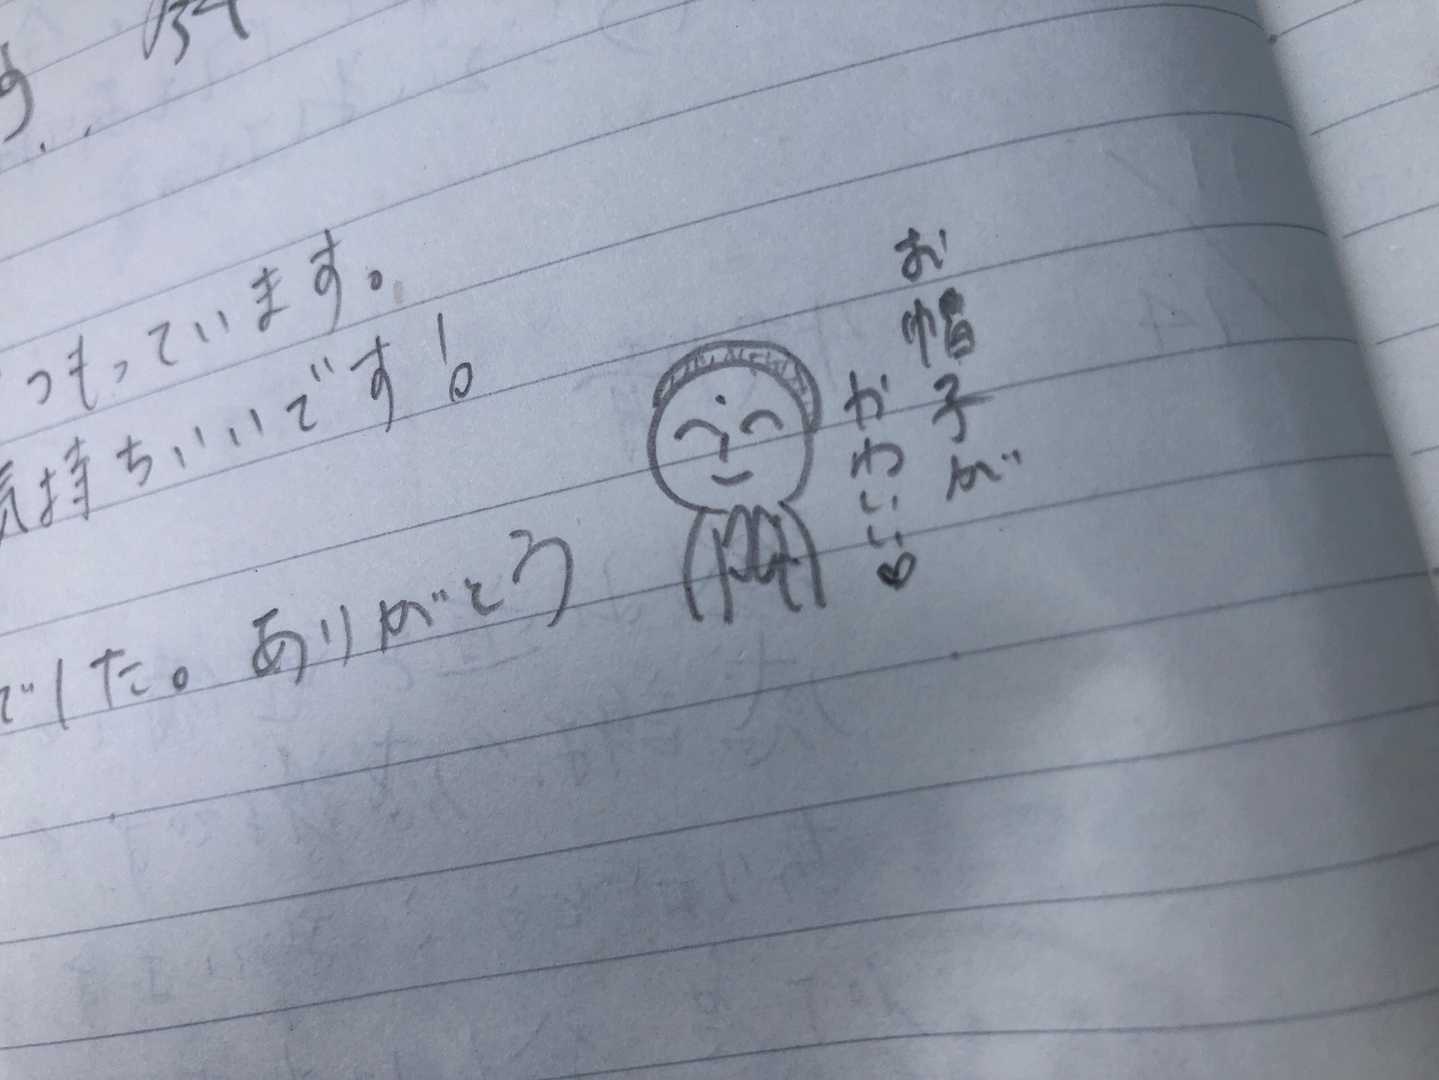 つもっています。
気持ちいいです!
でした。ありがとう
お帽子が
かわいい♥